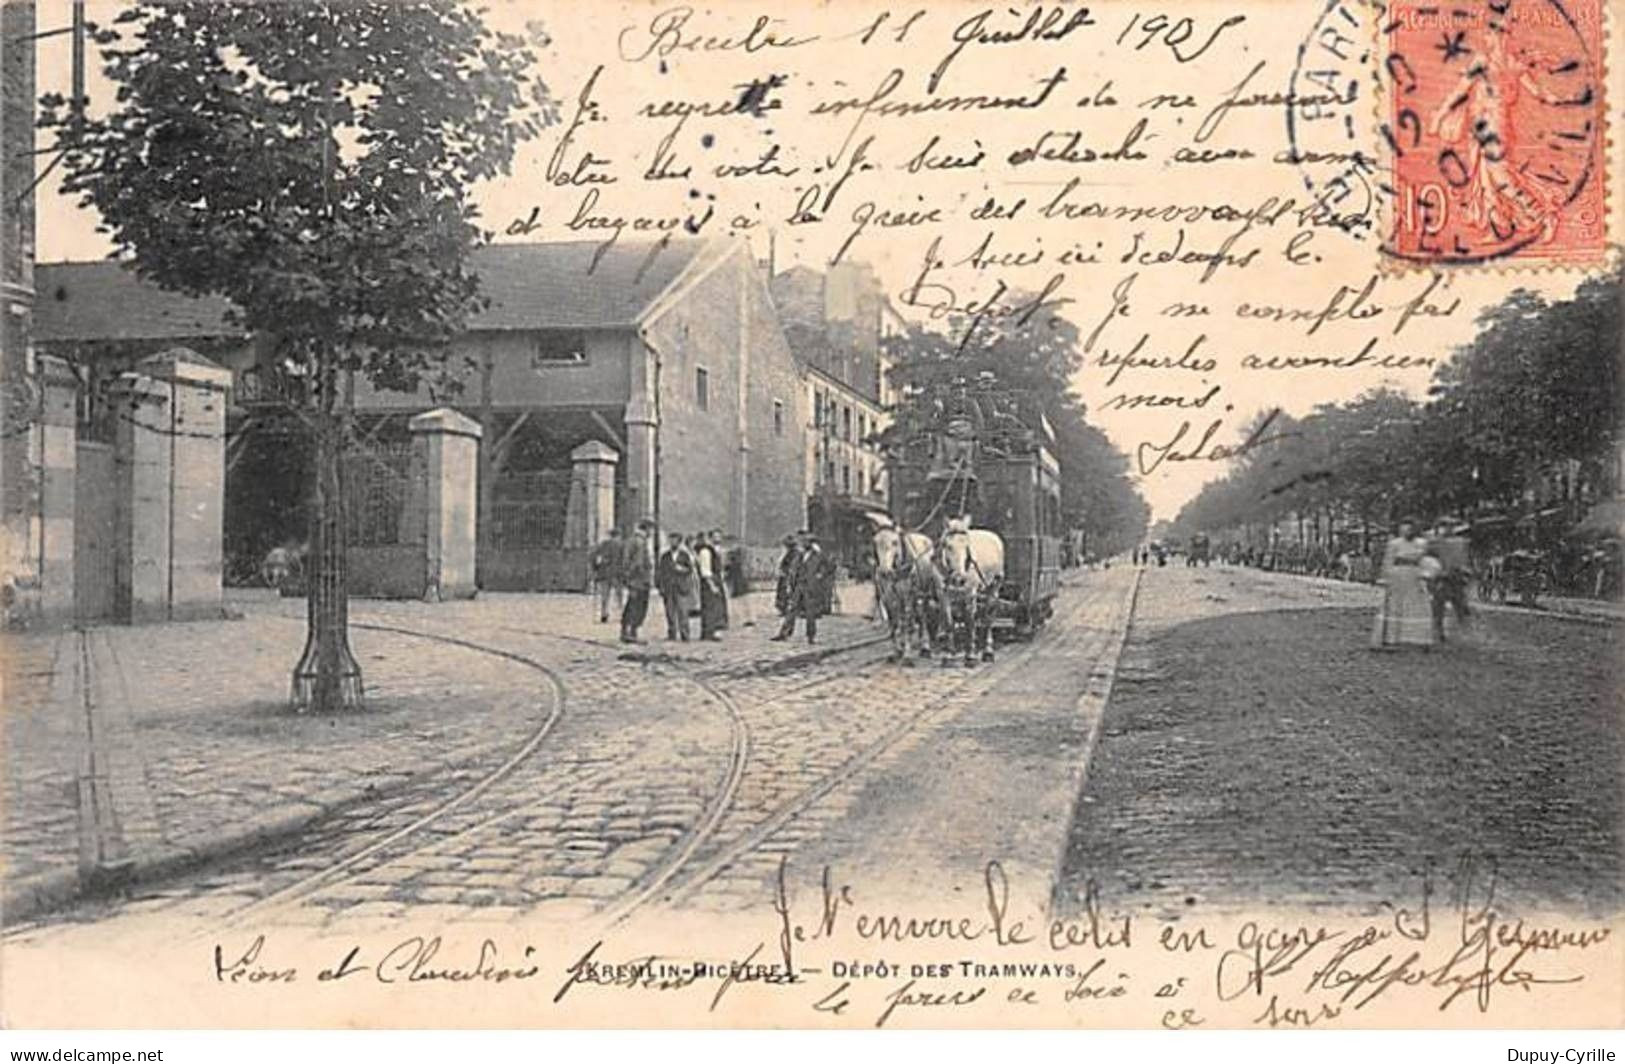 Bicetre 11 Juillet 1905
Je regrette infiniment de ne pouvoir
etre des votre. Je suis détaché avec arme
et bagages à la grève des tramways
Je suis ici dedans le
dépot. Je ne compte pas
repartir avant un
mois.
Salut
REPUBLIQUE FRANÇAISE
10
PARIS
12
05
J'envoie le colis en gare a St Germain
Léon et Claudius partent pour
KREMLIN-BICÊTRE. — DÉPÔT DES TRAMWAYS.
le
ce soir à St Hippolyte
ce soir
www.delcampe.net
Dupuy-Cyrille